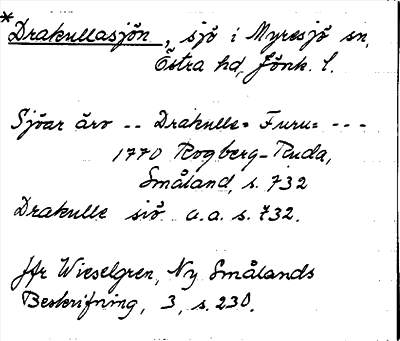 *Drakullasjön, sjö i Myresjö sn,
Östra hd, Jönk. l.
Sjöar äro -- Drakulle= Furu= ---
1770 Rogberg-Ruda,
Småland, s. 732
Drakulle siö a.a. s. 732.
Jfr Wieselgren, Ny Smålands
Beskrifning, 3, s. 230.